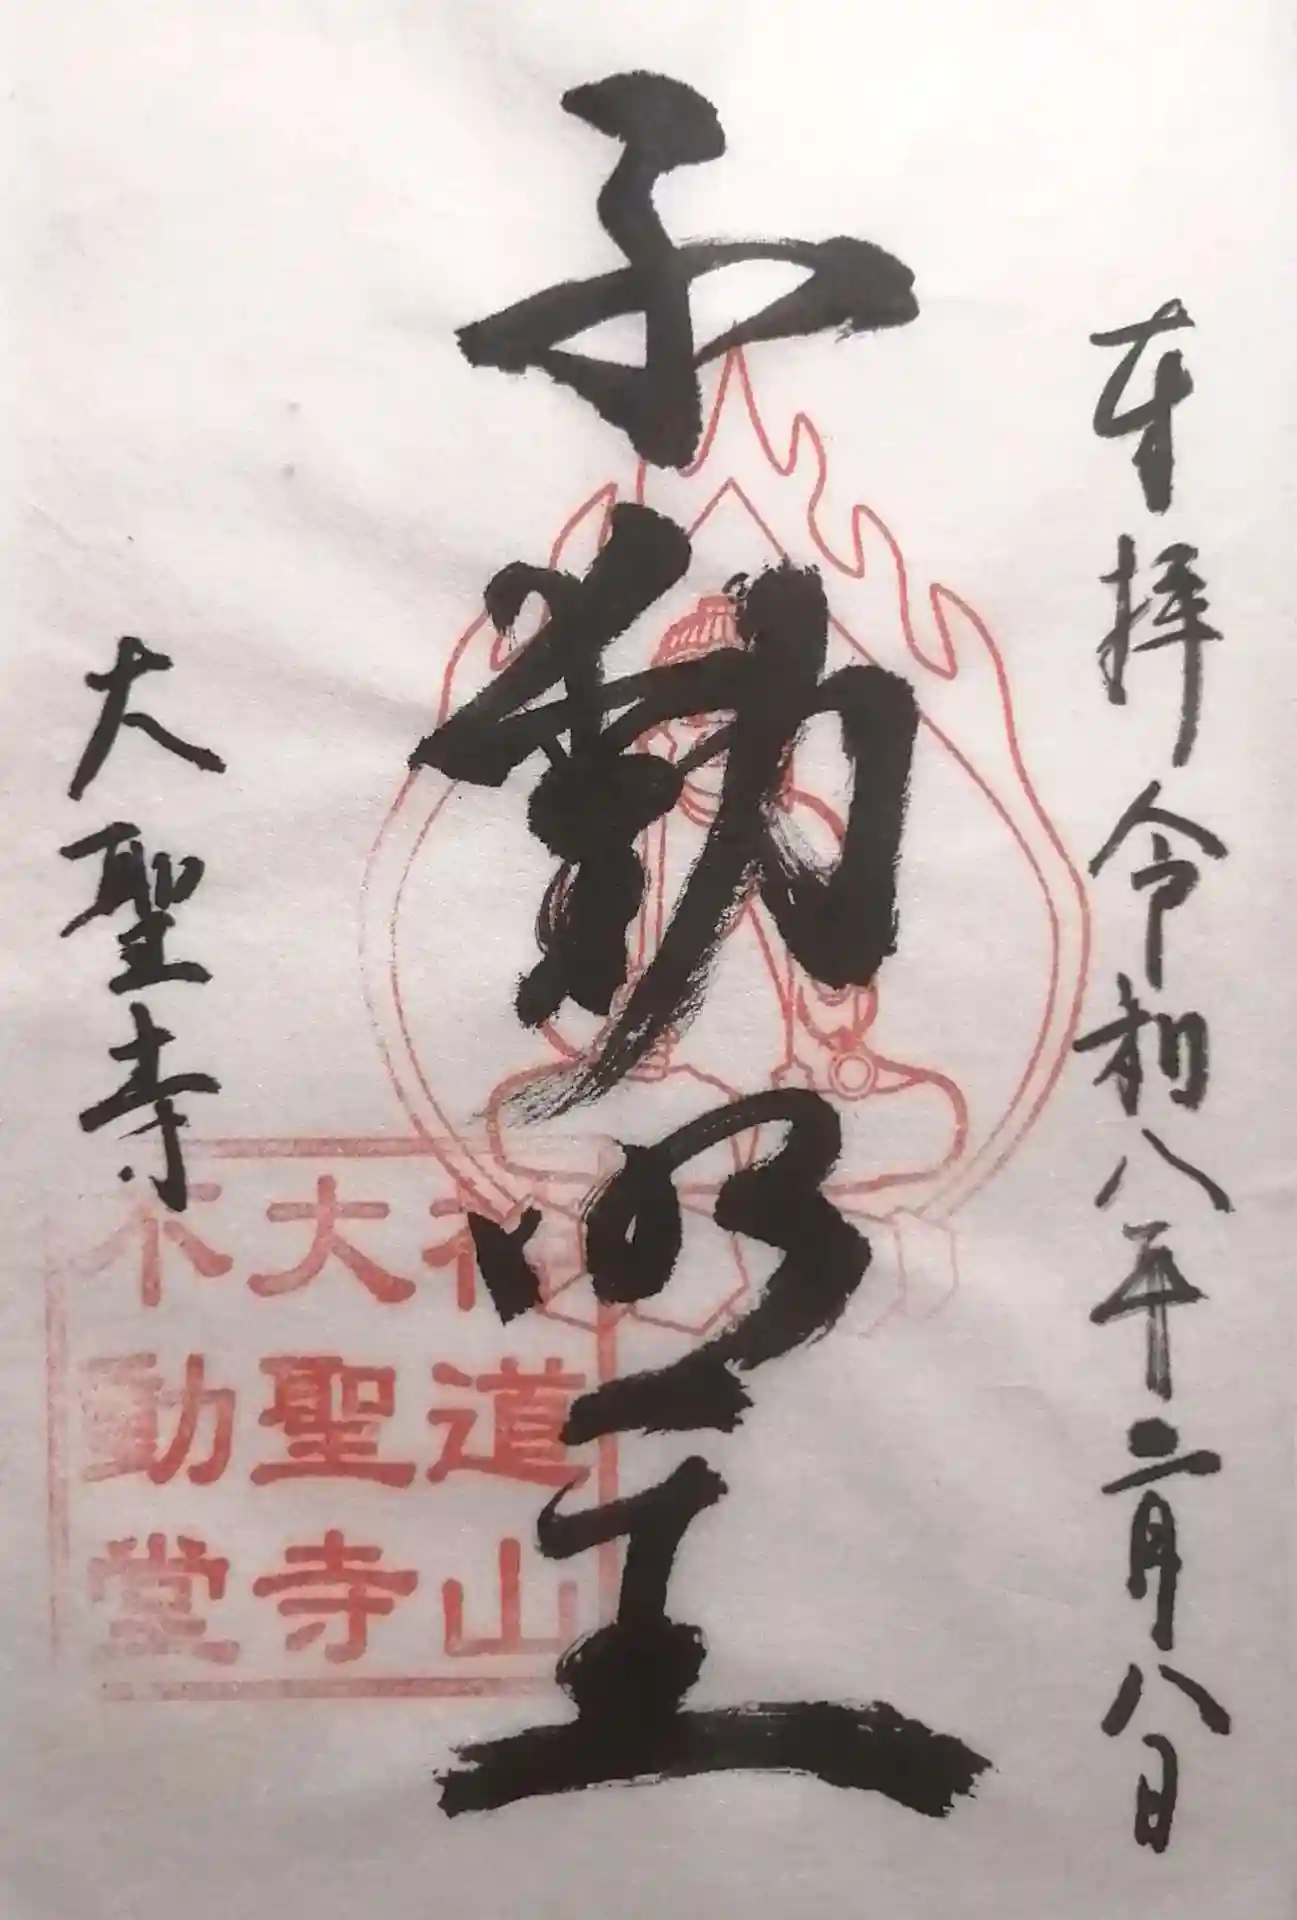 奉拝 令和八年二月八日
不動明王
大聖寺
道山
大聖寺
不動堂